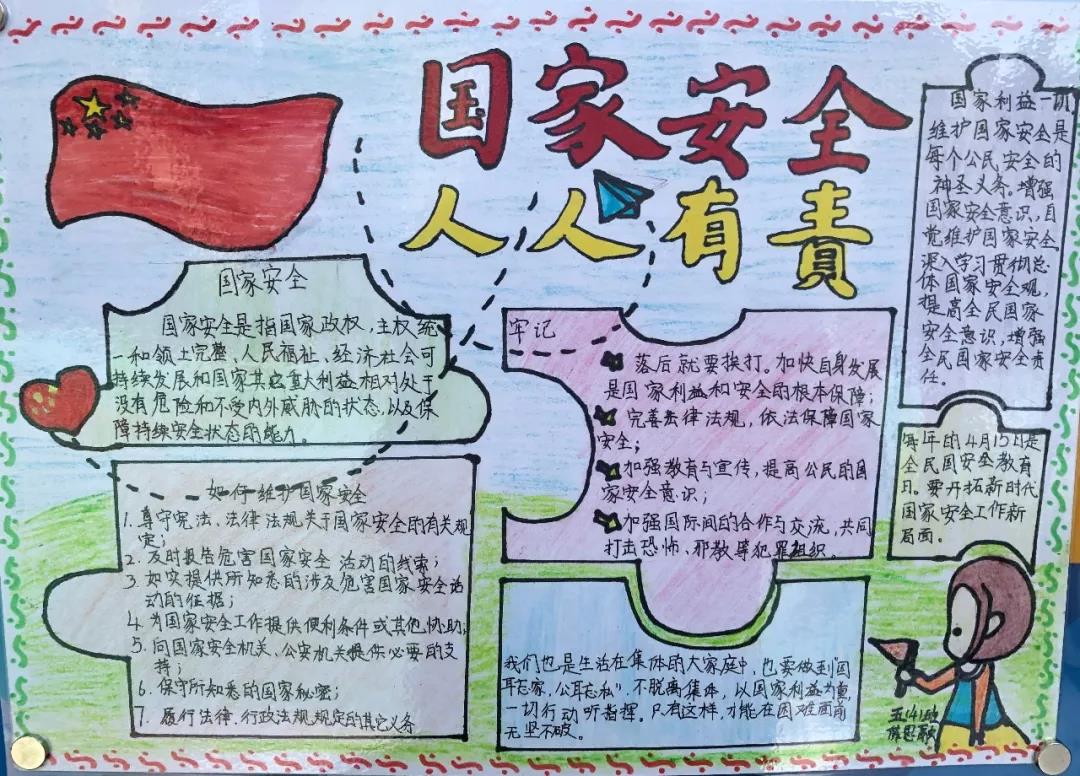 国家安全
人人有責
国家安全
国家安全是指国家政权,主权统
一和领土完整、人民福祉、经济社会可
持续发展和国家其它重大利益相对处于
没有危险和不受内外威胁的状态,以及保
障持续安全状态的能力.
如何维护国家安全
1. 尊守宪法、法律法规关于国家安全的有关规
定;
2. 及时报告危害国家安全活动的线索;
3. 如实提供所知悉的涉及危害国家安全活
动的证据;
4. 为国家安全工作提供便利条件或其他协助;
5. 向国家安全机关、公安机关提供必要的支
持;
6. 保守所知悉的国家秘密;
7. 履行法律.行政法规规定的其它义务
牢记
落后就要挨打。加快自身发展
是国家利益和安全的根本保障;
完善法律法规,依法保障国家
安全;
加强教育与宣传,提高公民的国
家安全意识;
加强国际间的合作与交流,共同
打击恐怖、邪教等犯罪组织.
我们也是生活在集体的大家庭中,也要做到"国
耳忘家,公耳忘私",不脱离集体,以国家利益为重
一切行动听指挥。只有这样,才能在困难面前
无坚不破。
国家利益一
维护国家安全是
每个公民安全的
神圣义务。增强
国家安全意识,自
觉维护国家安全
深入学习贯彻总
体国家安全观,
提高全民国家
安全意识,增强
全民国家安全责
任。
每年的4月15日是
全民国安全教育
日。要开拓新时代
国家安全工作新
局面。
五(4)班